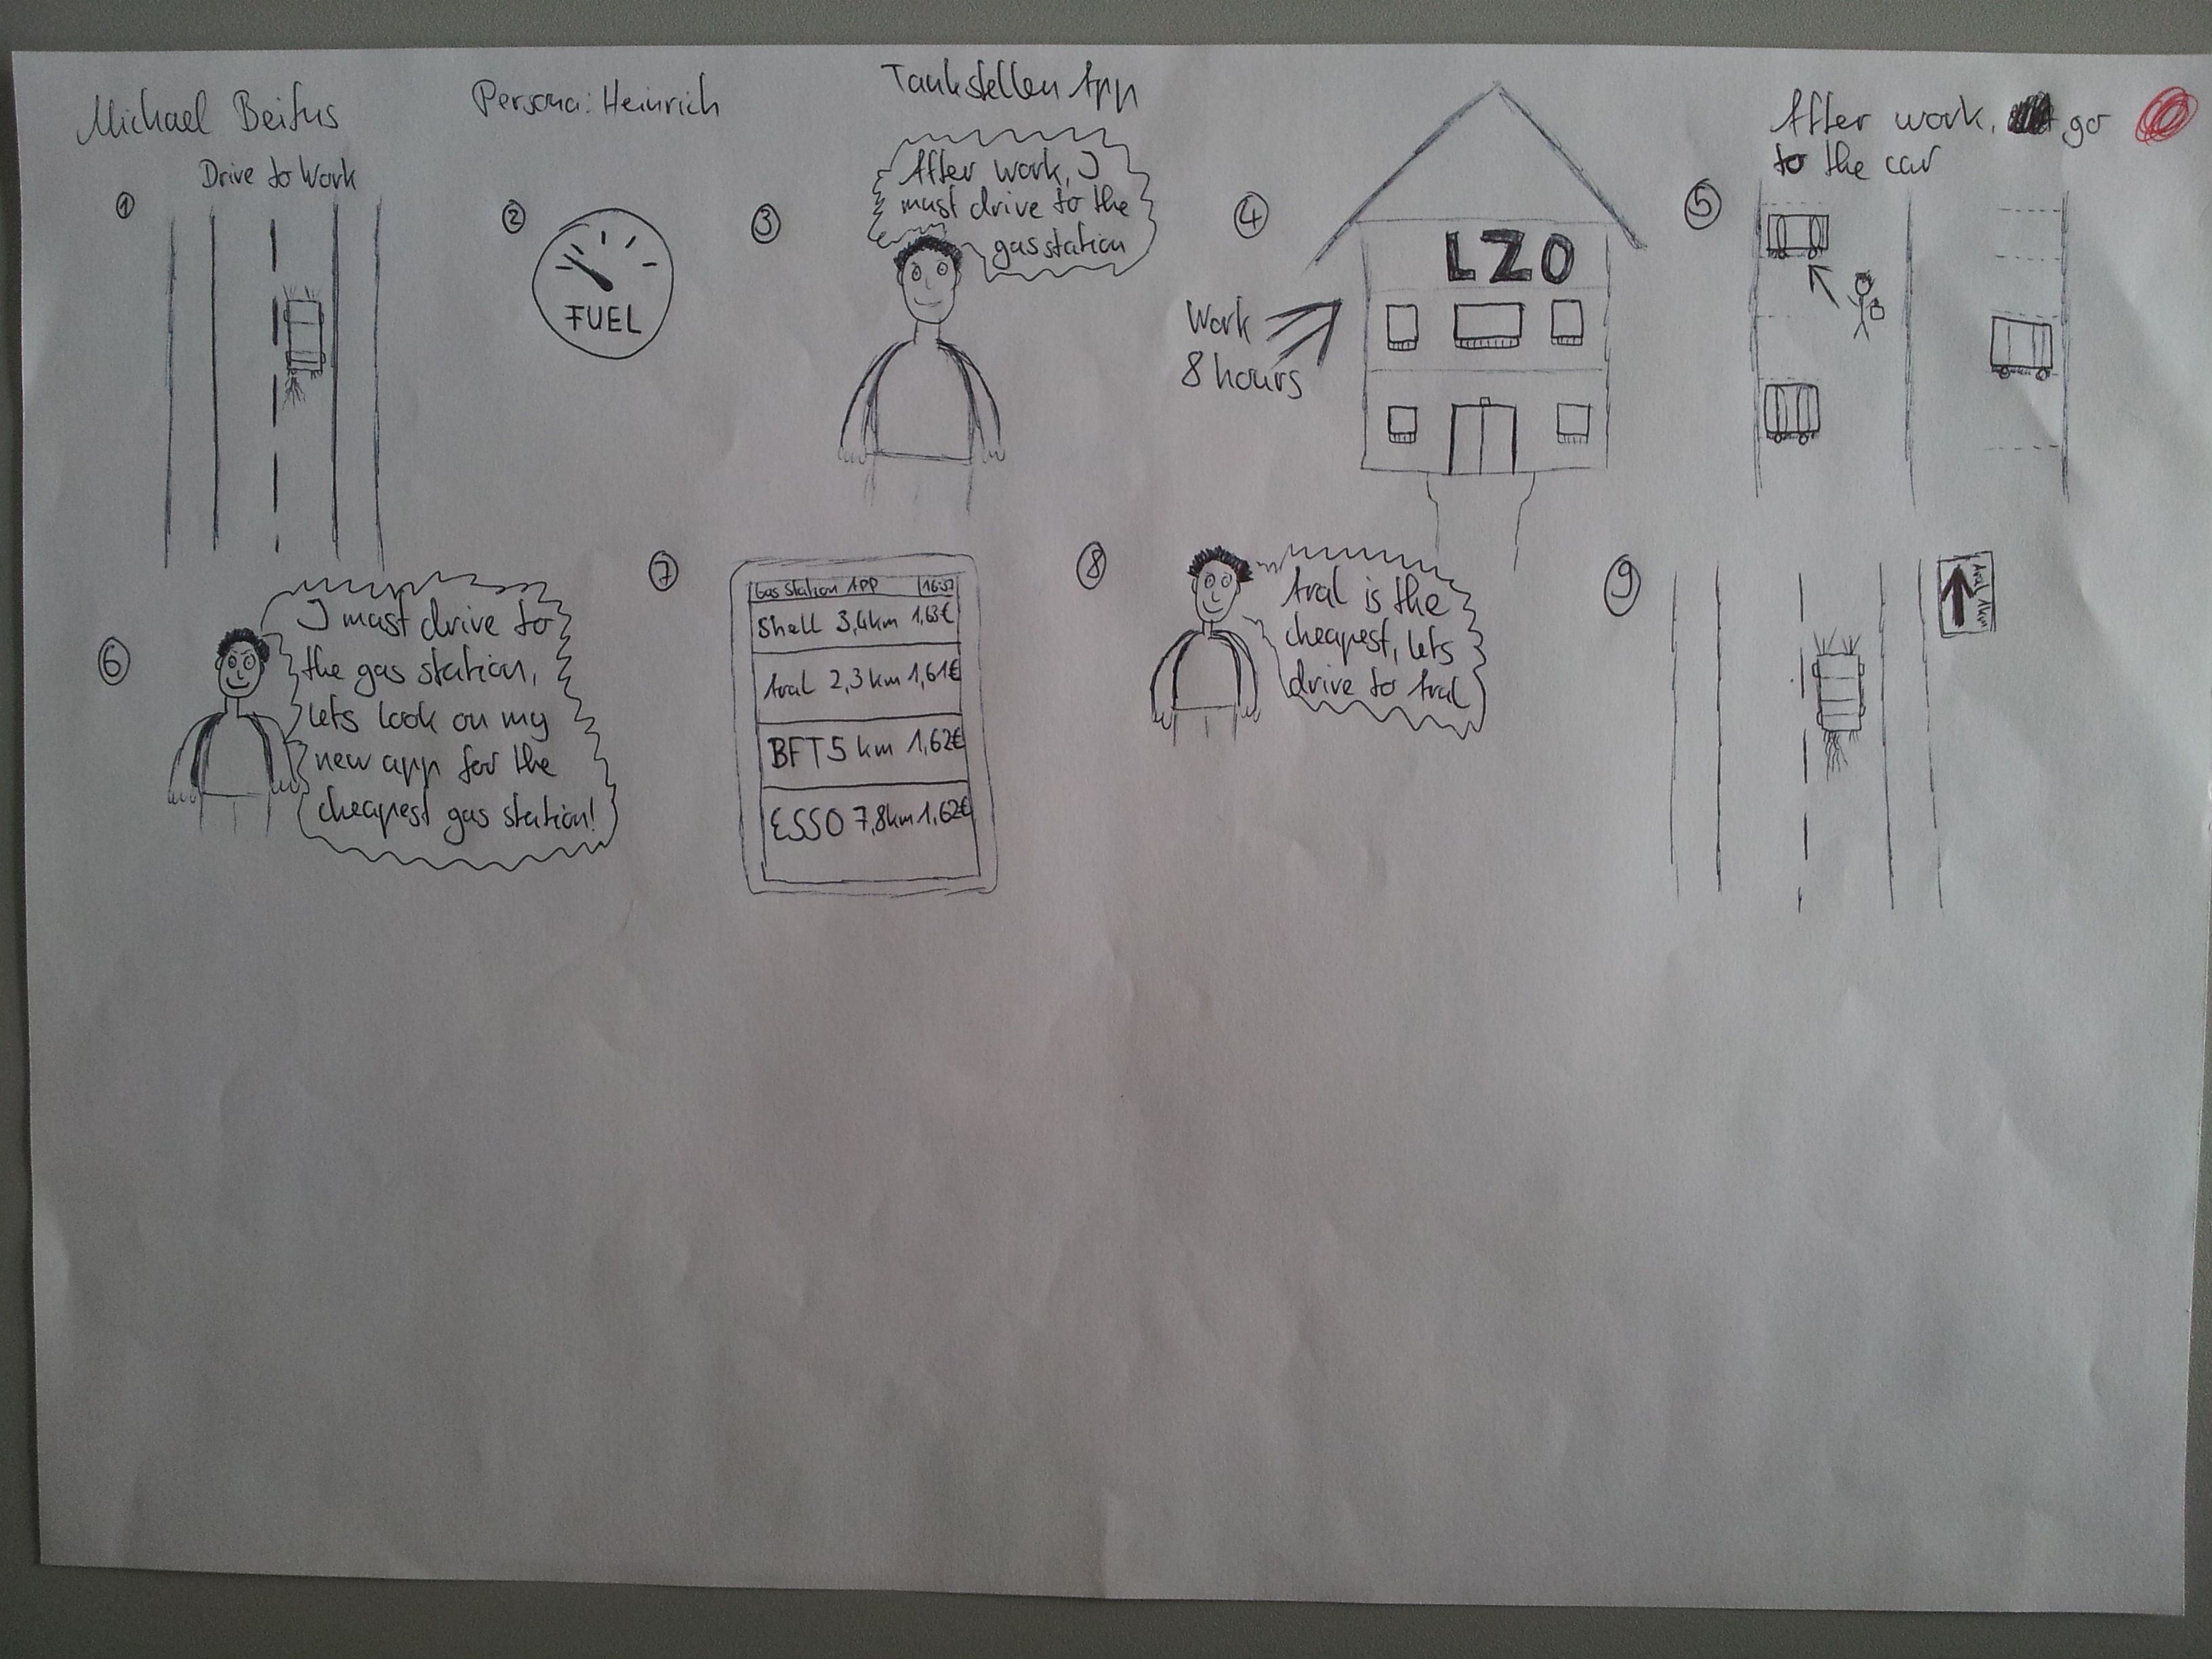 Michael Beifus
Persona: Heinrich
Tankstellen App
1
Drive to Work
2
FUEL
3
After work, I
must drive to the
gasstation
4
LZO
Work
8 hours
5
After work, go
to the car
6
I must drive to
the gas station,
lets look on my
new app for the
cheapest gas station!
7
Gas Station APP
Shell 3,4km 1,63€
Aral 2,3km 1,61€
BFT 5 km 1,62€
ESSO 7,8km 1,62€
8
Aral is the
cheapest, lets
drive to Aral
9
Aral 1km